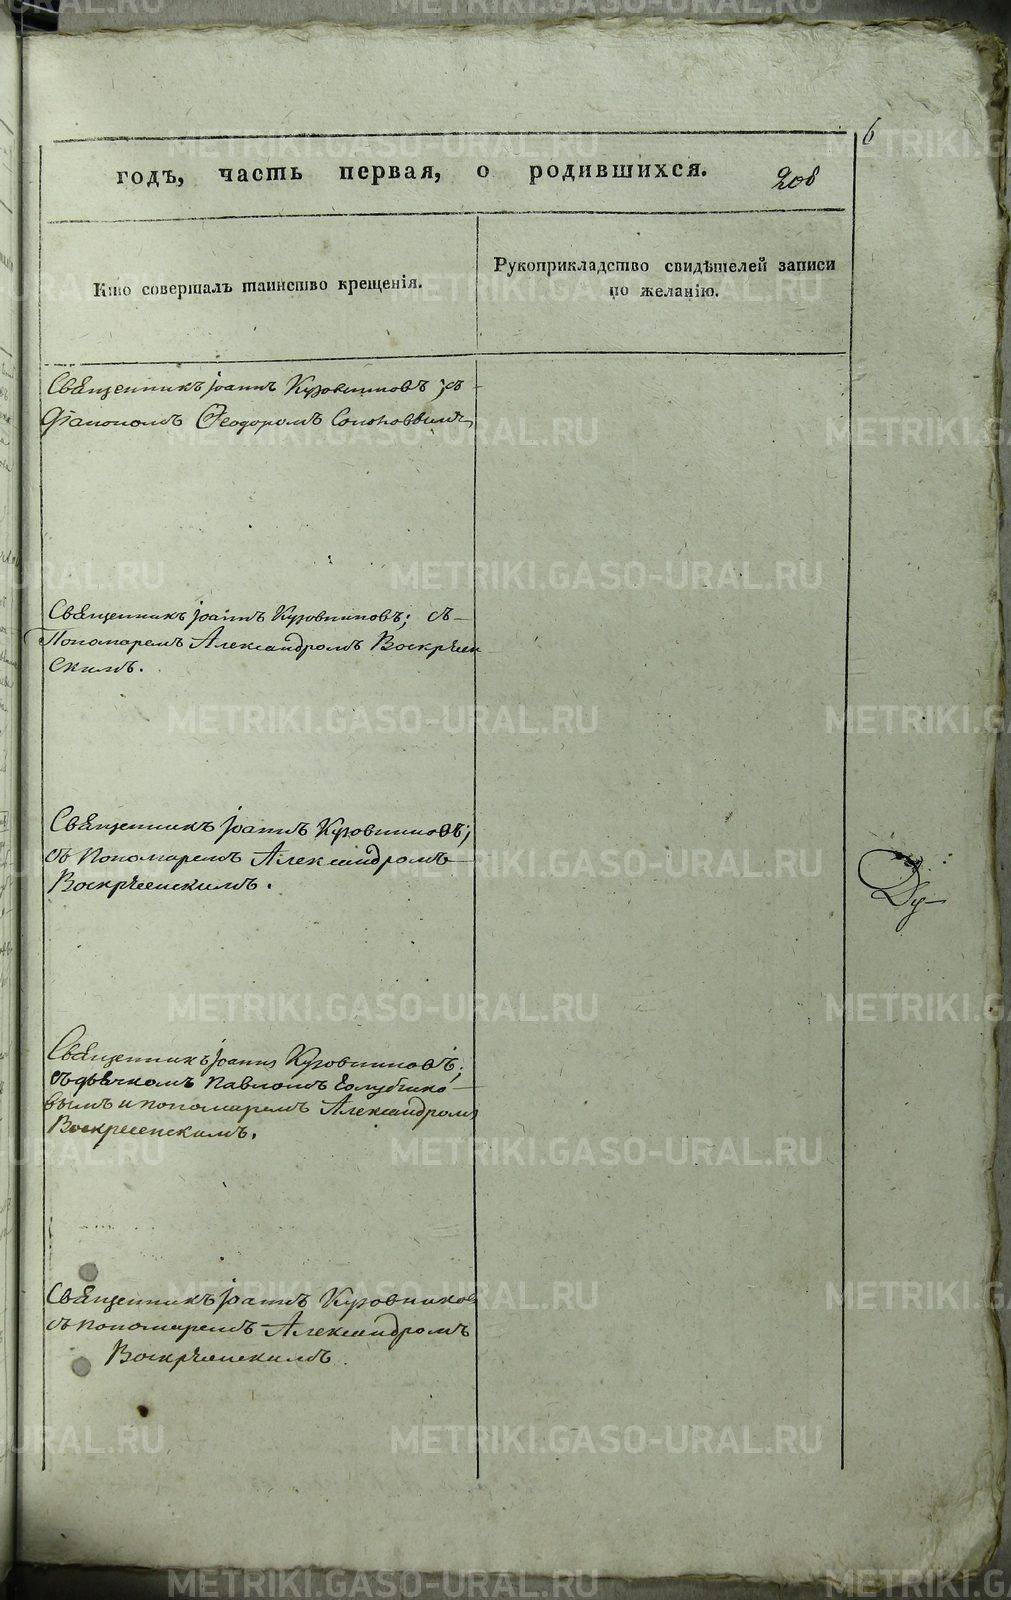 6
годъ, часть первая, о родившихся. 208
Кто совершалъ таинство крещенія.
Рукоприкладство свидѣтелей записи
по желанію.
Священникъ Іоаннъ Кузовниковъ; съ
Діакономъ Ѳеодоромъ
Священникъ Іоаннъ Кузовниковъ; съ
Пономаремъ Александромъ Воскресен
скимъ.
Священникъ Іоаннъ Кузовниковъ;
съ Пономаремъ Александромъ
Воскресенскимъ.
Священникъ Іоаннъ Кузовниковъ;
съ дьячкомъ Павломъ Голубчико
вымъ и пономаремъ Александромъ
Воскресенскимъ.
Священникъ Іоаннъ Кузовниковъ
съ пономаремъ Александромъ
Воскресенскимъ
Ду
METRIKI.GASO-URAL.RU